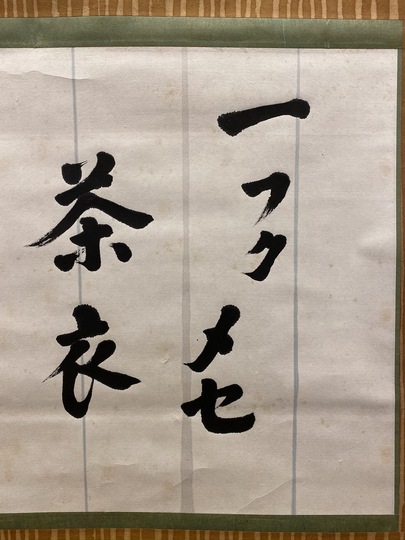 一フクメセ
茶衣